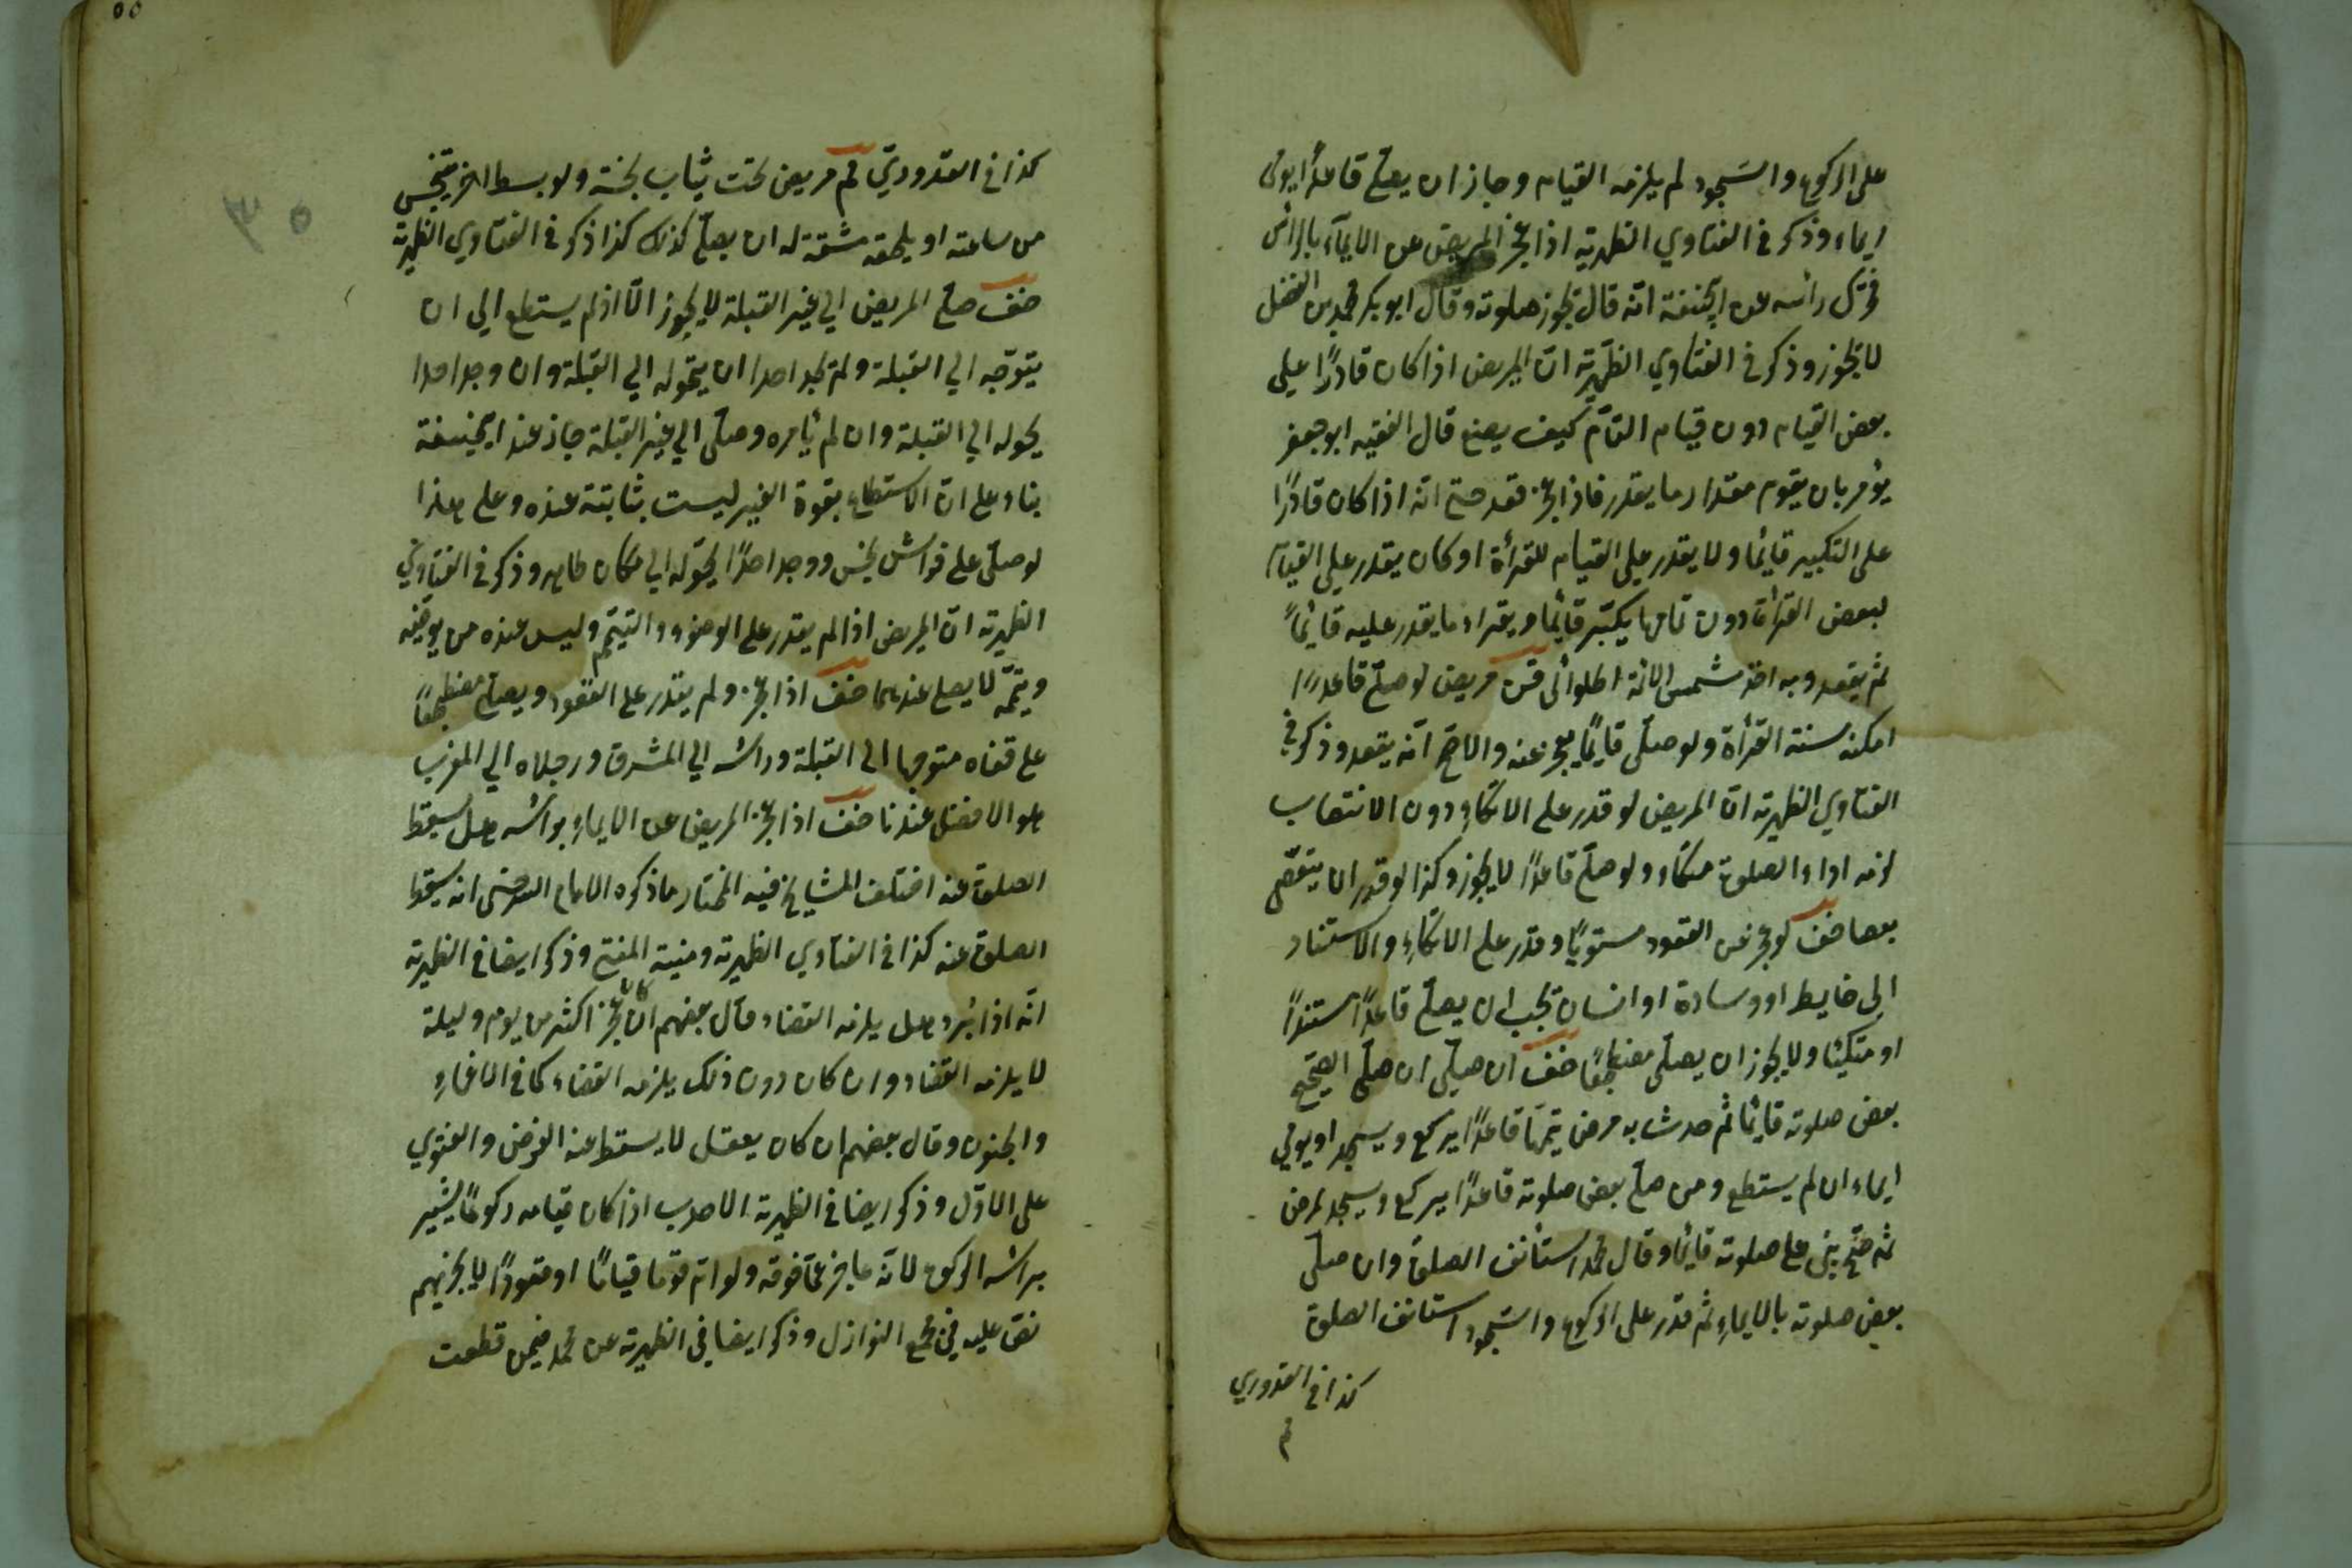 على الركوع والسّجود لم يلزمه القيام وجاز ان يصلّي قاعدًا يومى
ايماء وذكر في الفتاوي الظهرية اذا عجز المريض عن الايمآء بالرأس
فحرّك رأسه عن ابيحنيفة انّه قال تجوز صلوته وقال ابو بكر محمد بن الفضل
لا تجوز وذكر في الفتاوي الظّهيرية انّ المريض اذا كان قادرًا على
بعض القيام دون قيام التّامّ كيف يصنع قال الفقيه ابو جعفر
يؤمر بان يقوم مقدار ما يقدر فاذا عجز قعد حتى انّه اذا كان قادرًا
على التكبير قايمًا ولا يقدر على القيام للقرأة او كان يقدر على القيام
لبعض القرأة دون تمامها يكبّر قايمًا ويقرا ما يقدر عليه قايمًا
ثم يقعد وبه اخذ شمس الائمة الحلوائى مريض لو صلّي قاعدًا
امكنه سنة القرأة ولو صلّى قايمًا يعجز عنه والاصح انّه يقعد وذكر في
الفتاوي الظهيرية انّ المريض لو قدر على الاتكاء دون الانتصاب
لزمه اداء الصلوة متكاء ولو صلّي قاعدًا لا يجوز وكذا لو قدر ان يتعصّى
بعصا ضف لو عجز عن القعود مستويًا وقدر على الاتكاء والاستناد
الى حايط او وسادة او انسان تجب ان يصلّي قاعدًا مستندًا
او متكيًا ولا يجوز ان يصلّى مضطجعًا ضف ان صلّى الصّحيح
بعض صلوته قايمًا ثم حدث به مرض يتمّها قاعدًا يركع ويسجد او يومي
ايماء ان لم يستطع ومن صلّي بعض صلوته قاعدًا يركع ويسجد لمرض
ثم صحّ بنى على صلوته قايمًا وقال محمد استأنف الصلوة وان صلّى
بعض صلوته بالايماء ثم قدر على الركوع والسّجود استانف الصلوة
كذا في القدوري
كذا في القدوري ثم مريض تحت ثياب نجسة ولو بسط اخر يتنجس
من ساعته او يلحقه مشقة له ان يصلّي كذلك كذا ذكر في الفتاوي الظهيرية
ضف صلّي المريض الي غير القبلة لا يجوز الّا اذا لم يستطع الي ان
يتوجّه الي القبلة ولم يجد احدا ان يحوله الي القبلة وان وجد احدا
يحوله الي القبلة وان لم يأمره وصلّى الي غير القبلة جاز عند ابيحنيفة
بناء على انّ الاستطاعة بقوة الغير ليست بثابتة عنده وعلى هذا
لو صلّى على فراش نجس ووجد احدًا يحوّله الي مكان طاهر وذكر في الفتاوي
الظهيرية انّ المريض اذا لم يقدر على الوضوء والتيمّم وليس عنده من يوضّيه
وييمّمه لا يصلي عندهما ضف اذا عجز ولم يقدر على القعود ويصلّي مضطجعًا
على قفاه متوجها الى القبلة ورأسه الي المشرق ورجلاه الي المغرب
هو الافضل عندنا ضف اذا عجز المريض عن الايماء برأسه هل يسقط
الصلوة عنه اختلف المشايخ فيه المختار ما ذكره الامام السرخسى انه يسقط
الصلوة عنه كذا في الفتاوي الظهيرية ومنية المفتي وذكر ايضا في الظهيرية
انّه اذا برء هل يلزمه القضاء قال بعضهم ان كان عجز اكثر من يوم وليلة
لا يلزمه القضاء وان كان دون ذلك يلزمه القضاء كما في الاغماء
والجنون وقال بعضهم ان كان يعقل لا يسقط عنه الفرض والفتوي
على الاوّل وذكر ايضا في الظهيرية الاحدب اذا كان قيامه ركوعًا يشير
برأسه الركوع لانّه عاجز عمّا فوقه ولو امّ قوما قيامًا او قعودًا لا يجزيهم
نصّ عليه في مجمع النوازل وذكر ايضا في الظهيرية عن محمد فيمن قطعت